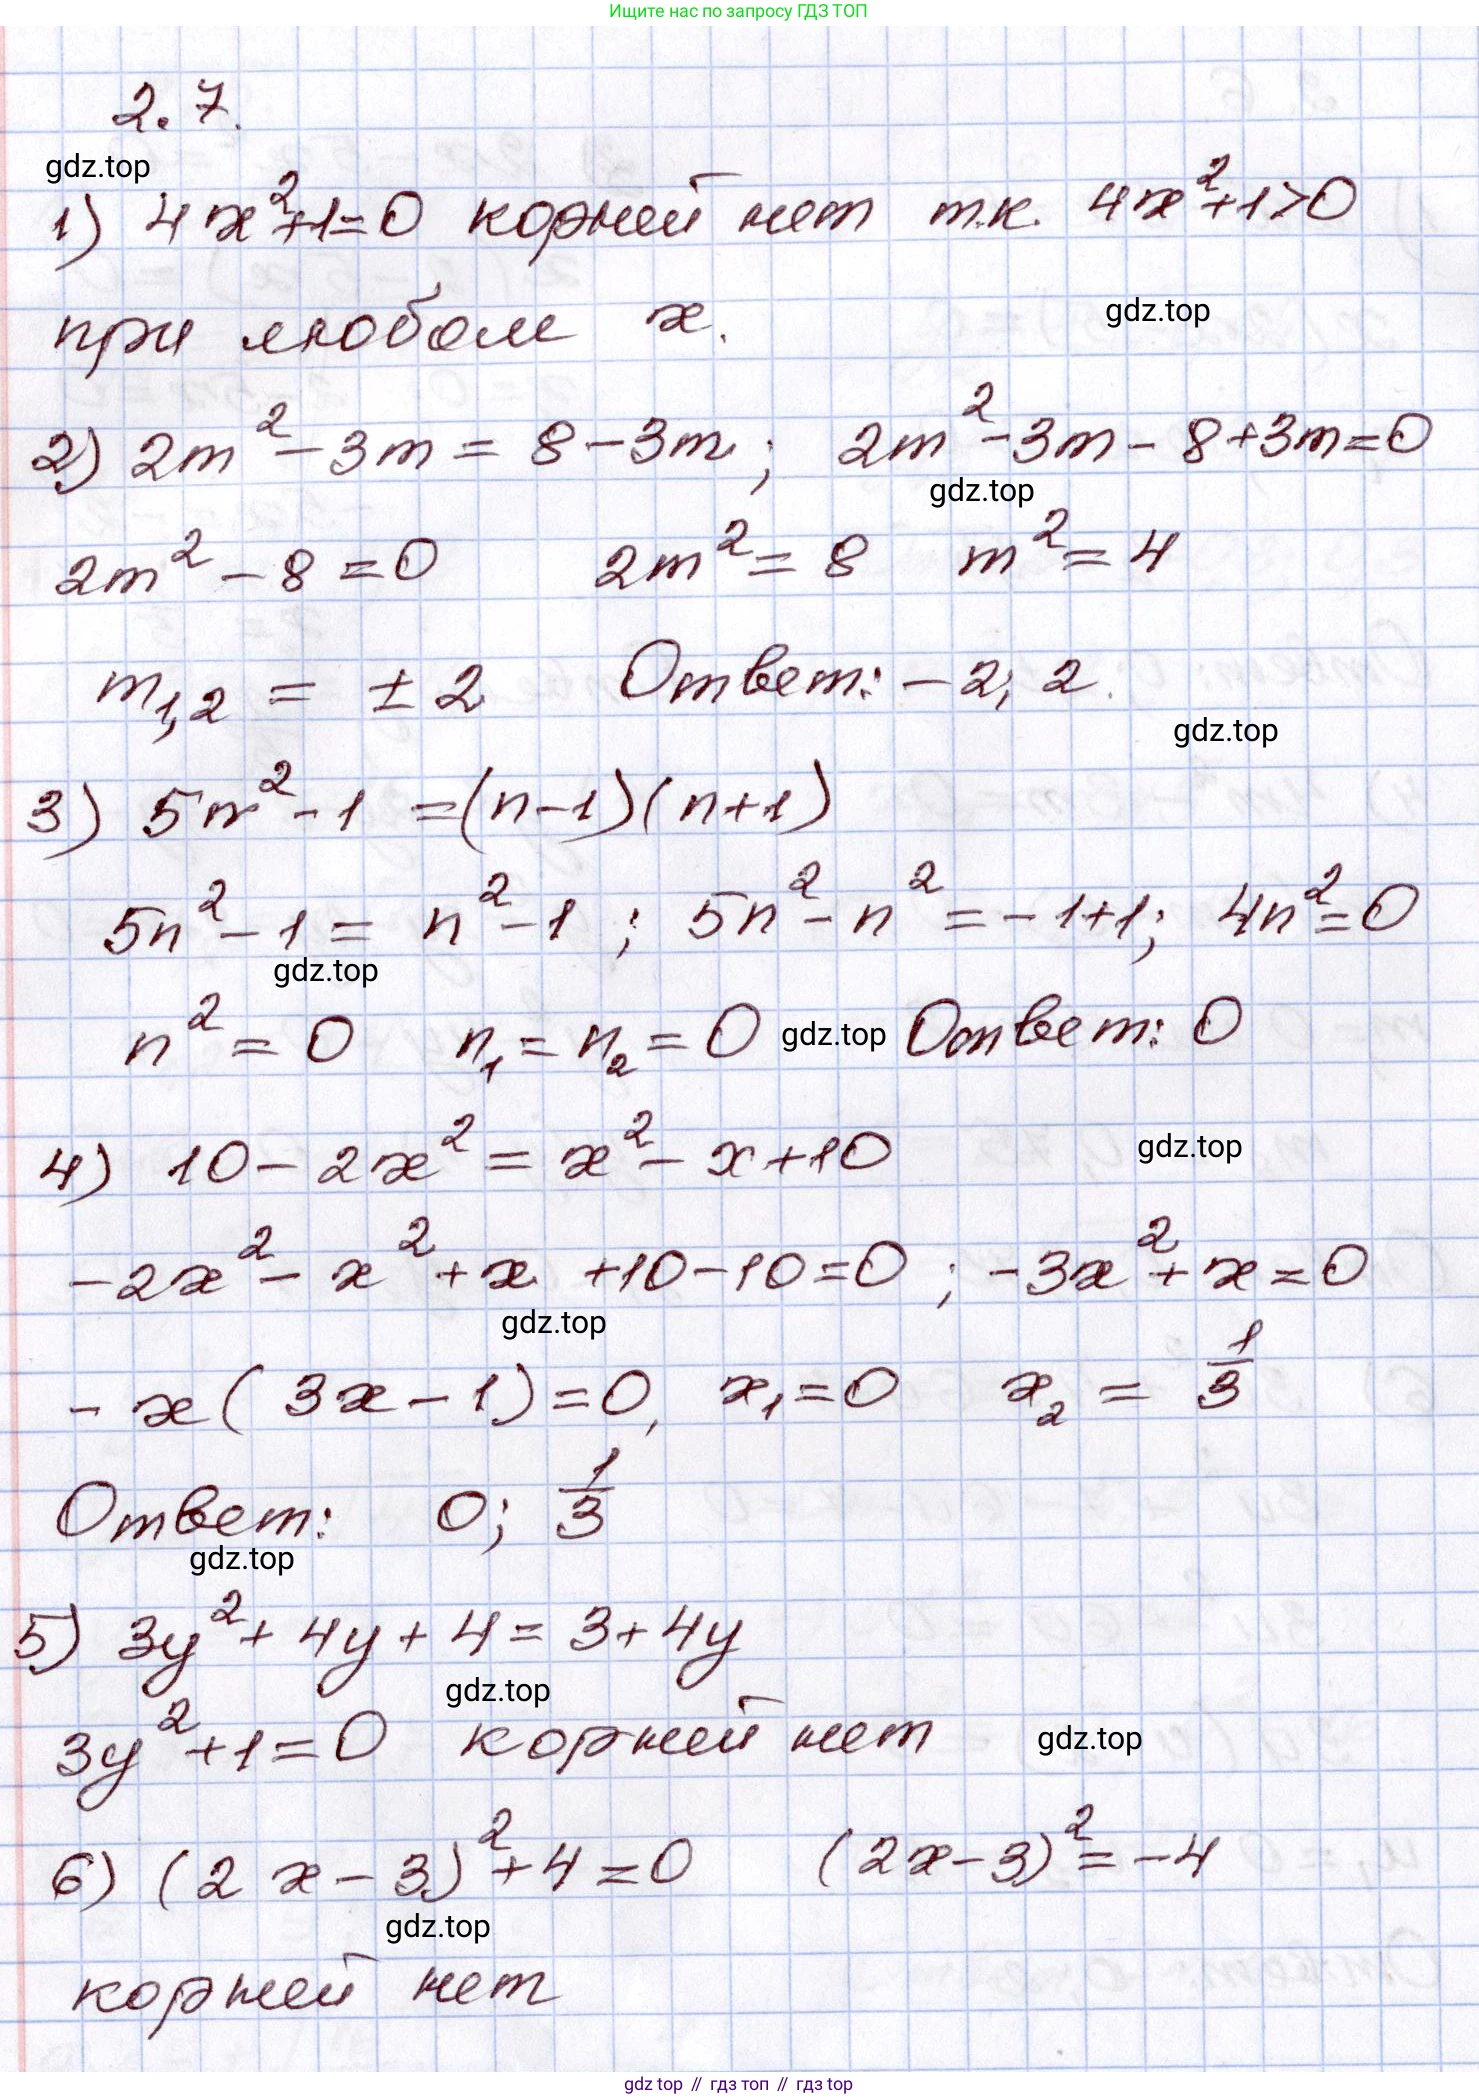 Ищите нас по запросу ГДЗ ТОП
2.7.
gdz.top
1) 4x²+1=0 корней нет т.к. 4x²+1>0
при любом x.
gdz.top
2) 2m²-3m = 8-3m; 2m²-3m-8+3m=0
gdz.top
2m²-8=0 2m²=8 m²=4
m₁,₂ = ±2 Ответ: -2; 2.
gdz.top
3) 5n²-1 =(n-1)(n+1)
5n²-1= n²-1; 5n²-n²=-1+1; 4n²=0
gdz.top
n²=0 n₁=n₂=0 gdz.top Ответ: 0
4) 10-2x²=x²-x+10
gdz.top
-2x²-x²+x+10-10=0; -3x²+x=0
gdz.top
-x(3x-1)=0, x₁=0 x₂= 1/3
Ответ: 0; 1/3
gdz.top
5) 3y²+4y+4=3+4y
gdz.top
3y²+1=0 корней нет
gdz.top
6) (2x-3)²+4=0 (2x-3)²=-4
gdz.top
корней нет
gdz.top // гдз топ // гдз top